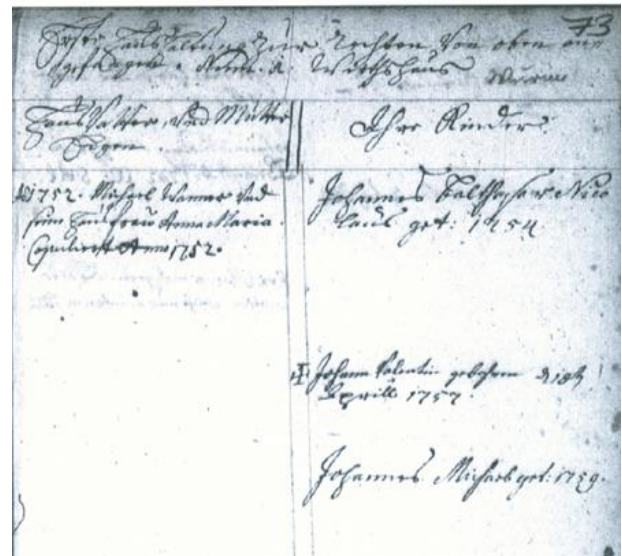 73
Erste Haushaltung zur Rechten von oben an
gefangen. Num. 1. Wirthshaus
Hauß Vatter, und Mutter
Ihre Kinder.
1752. Michael Wanner und
seine Haus frau Anna Maria.
Copuliert Anno 1752.
Johannes Balthasar Nico
laus get: 1754
Johann Valentin gebohren d 18t
Aprill 1757.
Johannes Michael get: 1759.